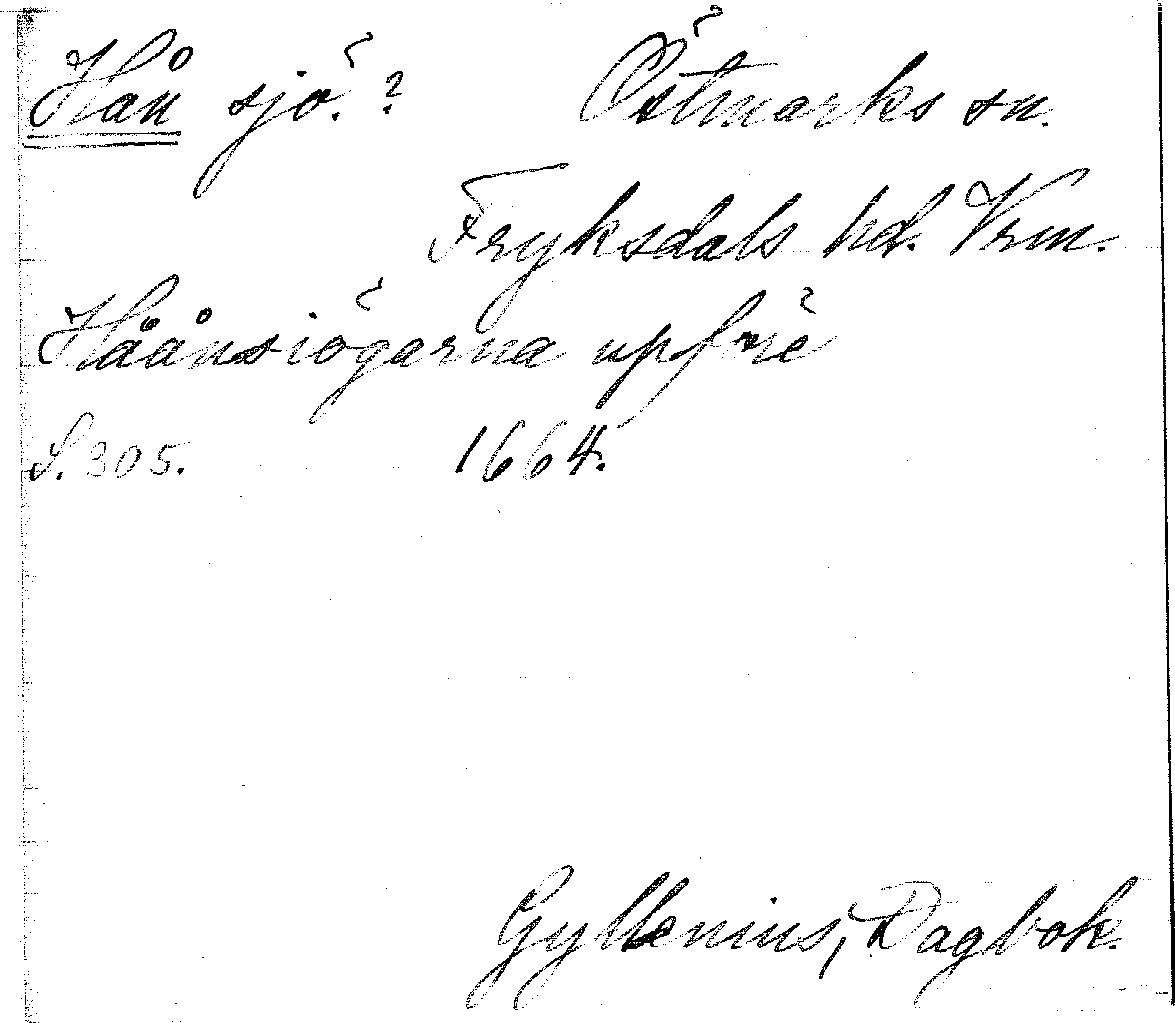 Hån sjö.?
Östmarks sn.
Fryksdals hd. Vrm.
Håånsiögarna upför
S. 305. 1664.
Gyllenius, Dagbok.